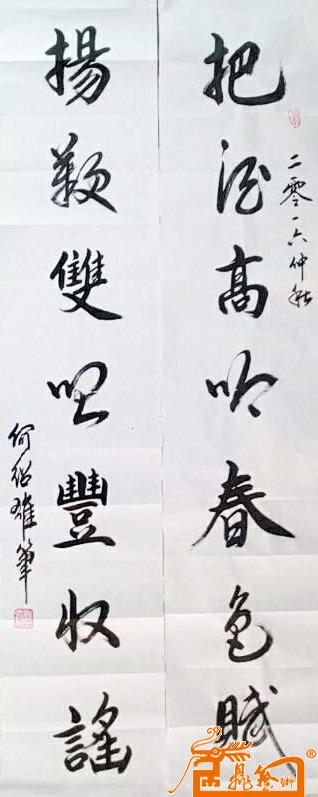 二零一六仲秋
把酒高吟春色賦
揚歌雙唱豐收謠
何紹雄筆